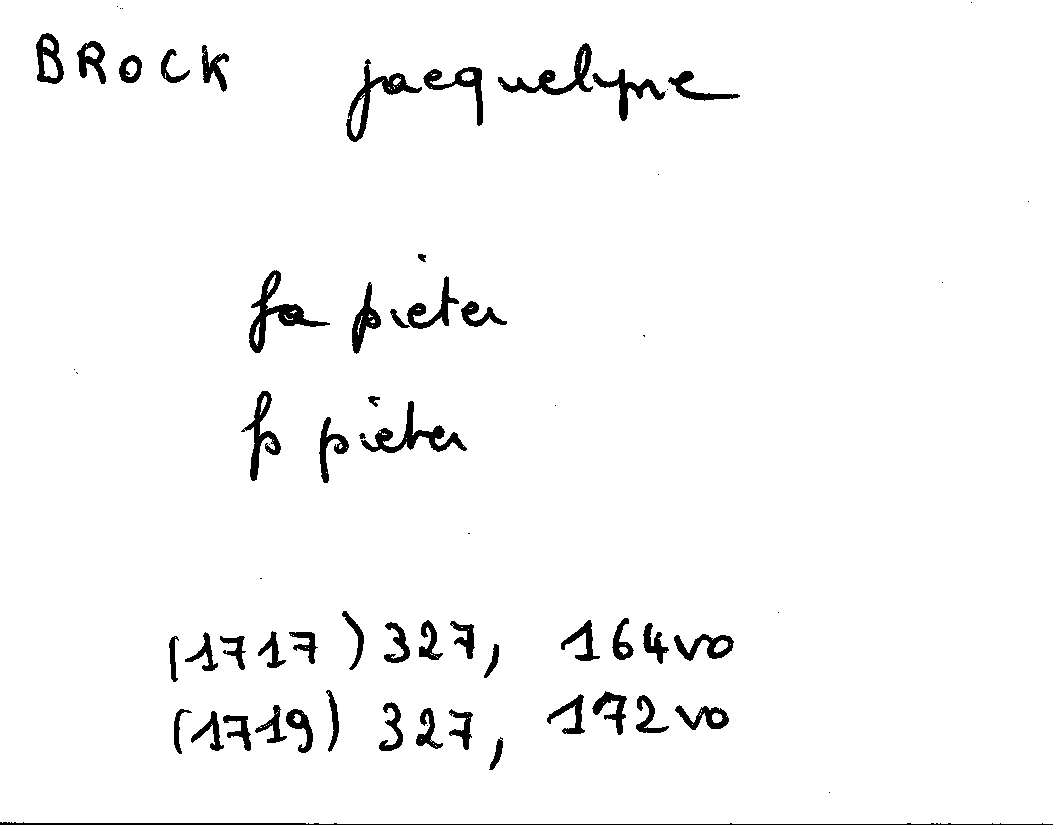 BROCK jacquelyne
fa pieter
fs pieter
(1717) 327, 164vo
(1719) 327, 172vo